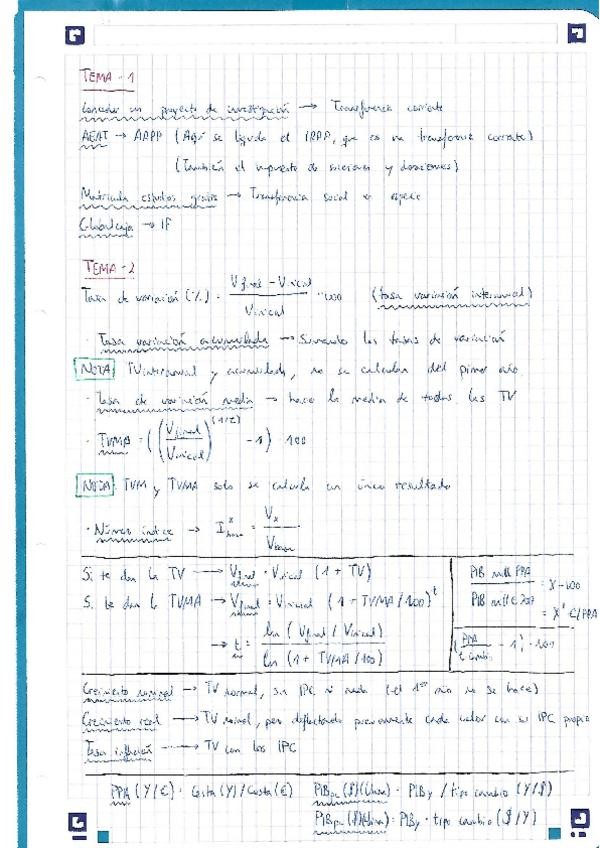 TEMA - 1
Conceder un proyecto de investigación → Transferencia corriente
AEAT → AAPP (Aquí se liquida el IRPF, que es una transferencia corriente)
(También el impuesto de sucesiones y donaciones)
Matrícula estudios gratis → Transferencia social en especie
Globalcaja → IF
TEMA - 2
Tasa de variación (%) = (Vfinal - Vinicial / Vinicial) · 100 (tasa variación interanual)
· Tasa variación acumulada → Sumando las tasas de variación
NOTA TVinteranual y acumulada, no se calculan del primer año
· Tasa de variación media → hace la media de todas las TV
· TVMA = ((Vfinal / Vinicial)^(1/t) - 1) · 100
NOTA TVM y TVMA solo se calcula un único resultado
· Números índice → I = Vx /
Si te dan la TV → Vfinal = Vinicial (1 + TV)
Si te dan la TVMA → Vfinal = Vinicial (1 + TVMA/100)^t
→ t = ln (Vfinal / Vinicial) / ln (1 + TVMA/100)
PIB mill PPA
PIB mill €
= X - 100
= X' €/PPA
(PPA / t cambio - 1) · 100
Crecimiento nominal → TV normal, sin IPC ni nada (el 1er año no se hace)
Crecimiento real → TV normal, pero deflactando previamente cada valor con su IPC propio
Tasa inflación → TV con los IPC
PPA (Y/€) = Cesta (Y) / Cesta (€)
PIBpm ($) = PIBy / tipo cambio (Y/$)
PIBpm ($) = PIBy · tipo cambio ($/Y)